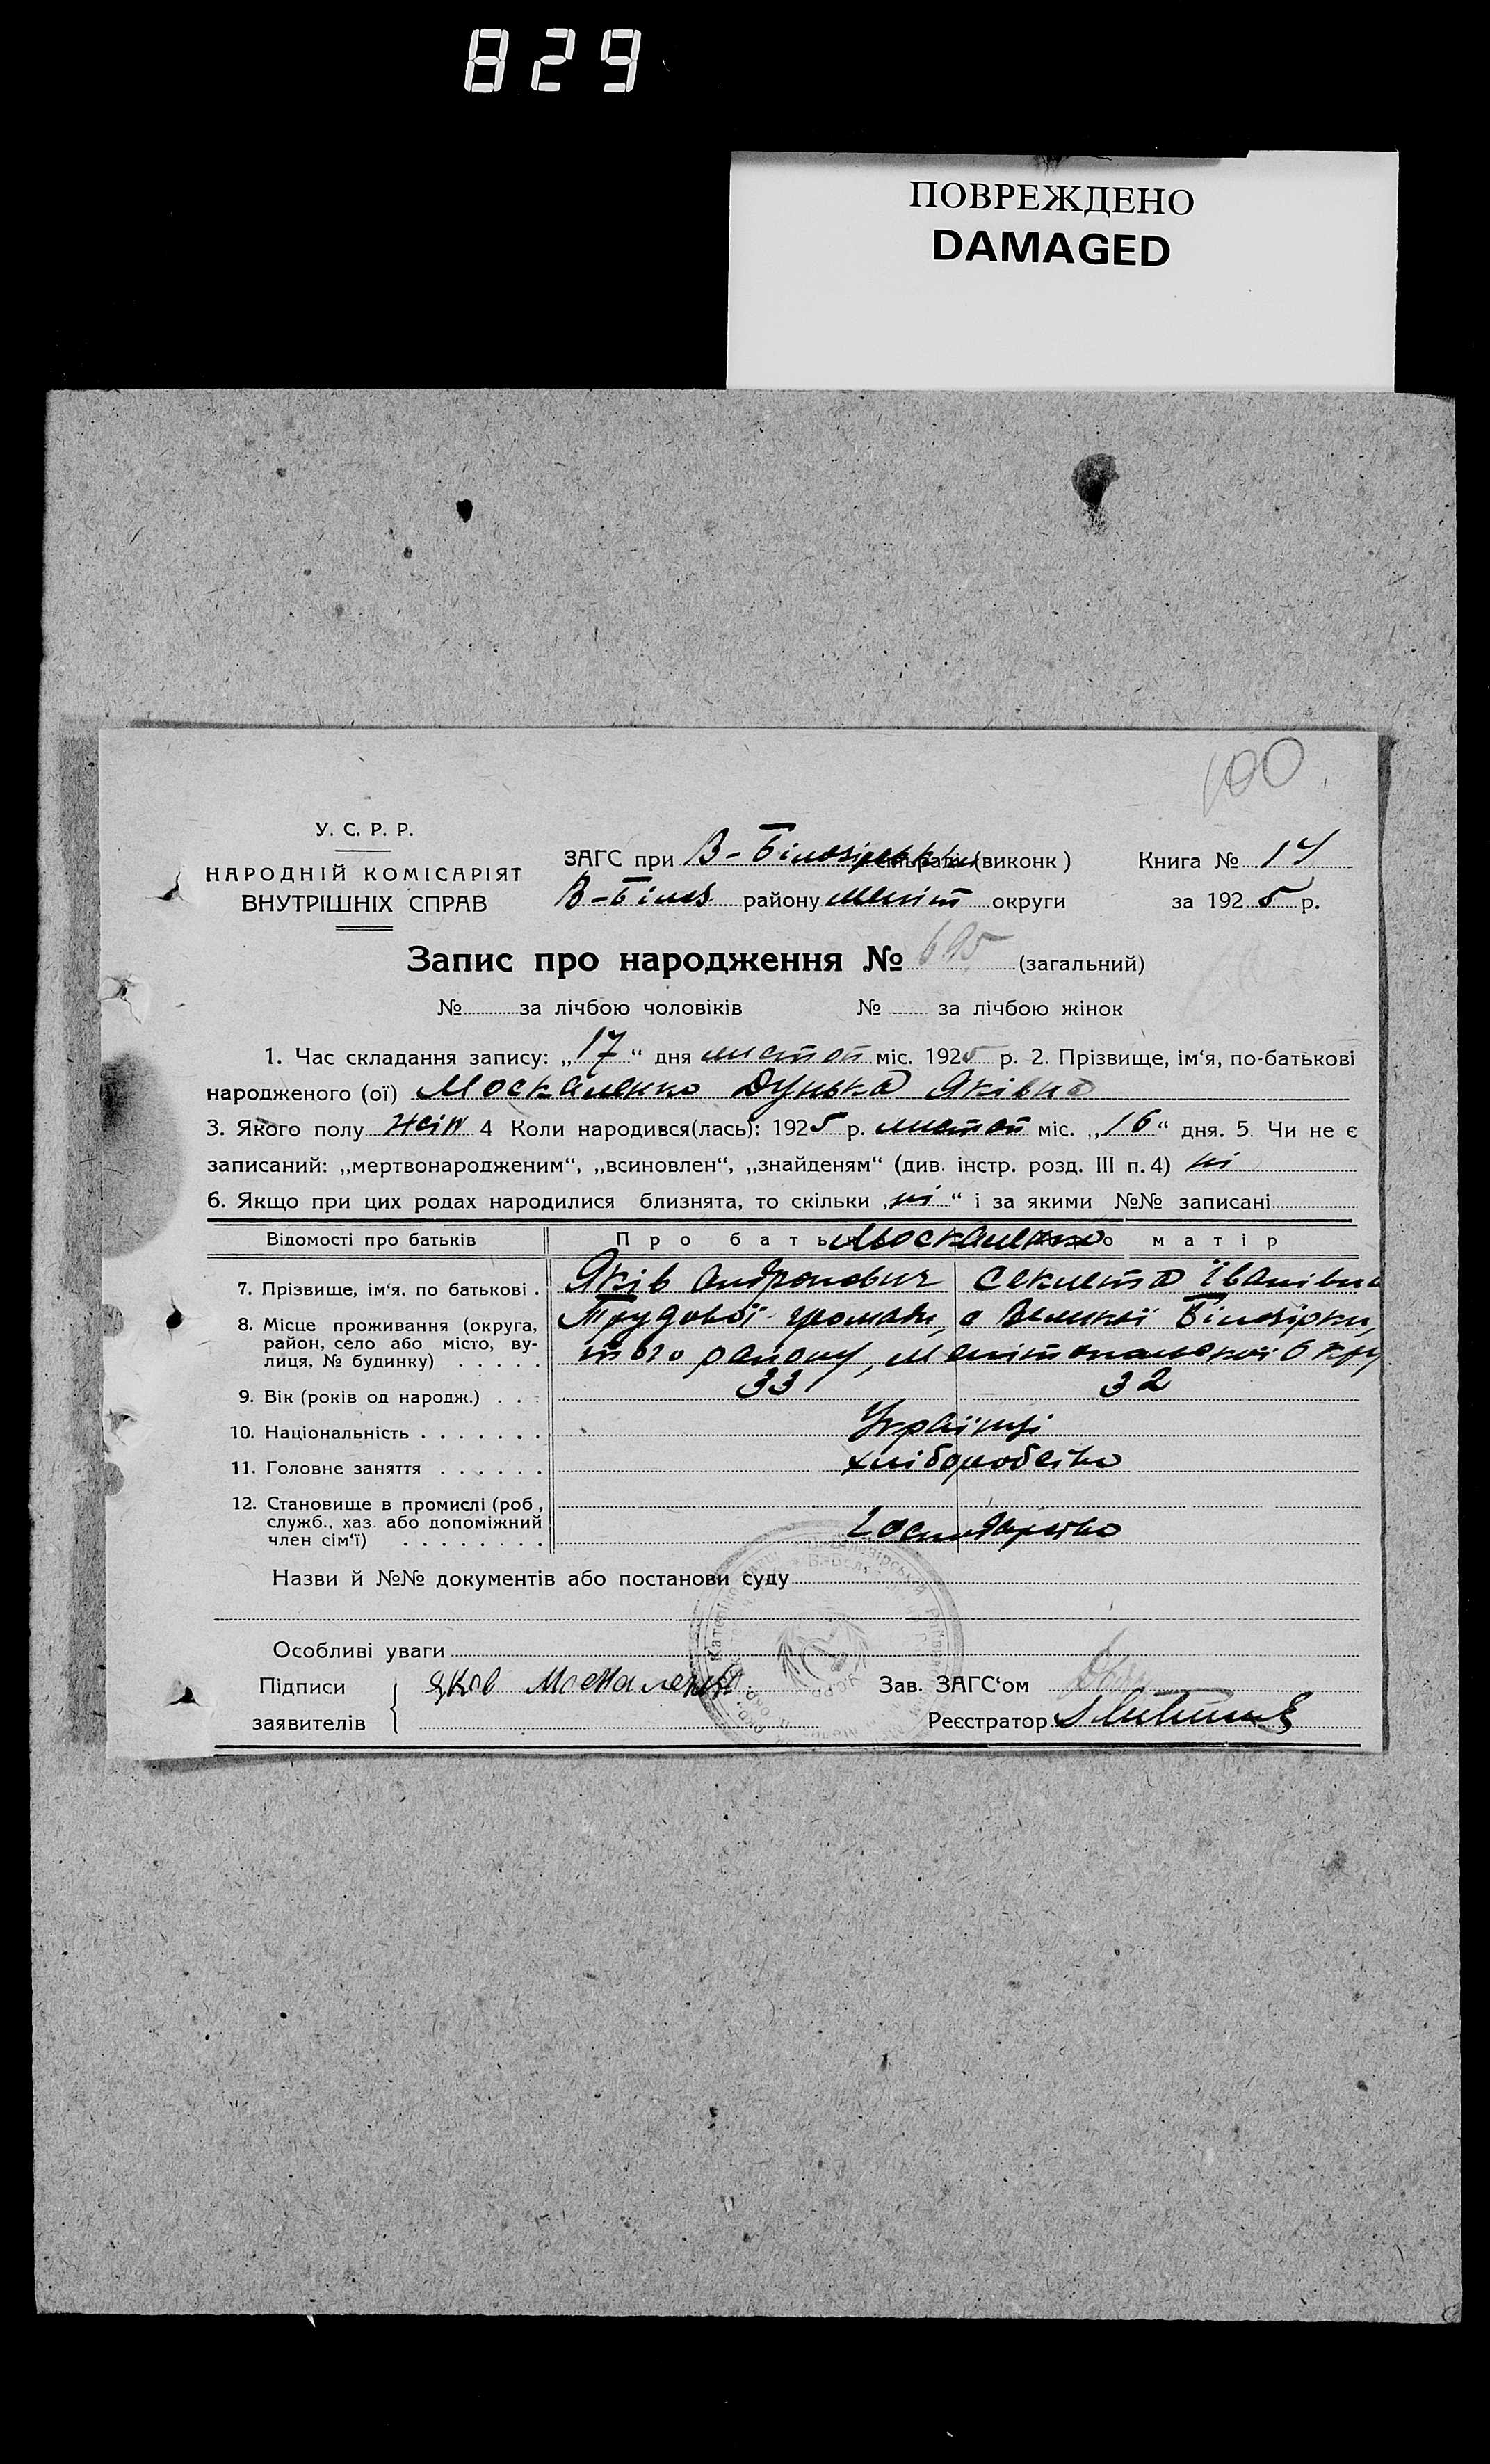 829
ПОВРЕЖДЕНО
DAMAGED
100
У. С. Р. Р.
НАРОДНІЙ КОМІСАРІЯТ
ВНУТРІШНІХ СПРАВ
ЗАГС при В-Білозірськім сільраді (виконк) Книга № 17
В-Білоз району Меліт округи за 1925 р.
Запис про народження № 695 (загальний)
№ за лічбою чоловіків № за лічбою жінок
1. Час складання запису: „17“ дня листоп міс. 1925 р. 2. Прізвище, ім‘я, по-батькові
народженого (ої) Москаленко Дунька Яківна
3. Якого полу жін 4 Коли народився(лась): 1925 р. листоп міс. „16“ дня. 5. Чи не є
записаний: „мертвонародженим“, „всиновлен“, „знайденям“ (див. інстр. розд. III п. 4) ні
6. Якщо при цих родах народилися близнята, то скільки „ні“ і за якими №№ записані
Відомості про батьків Про батька Москаленко Про матір
7. Прізвище, ім‘я, по батькові . Яків Андронович Секлета Іванівна
8. Місце проживання (округа, Трудової громади, с Великої Білозірки,
район, село або місто, ву-
лиця, № будинку) . . . . . того району, Мелітопальської Окру
9. Вік (років од народж.) . . . 33 32
10. Національність . . . . . . . Українці
11. Головне заняття . . . . . . хліборобство
12. Становище в промислі (роб,
служб., хаз. або допоміжний
член сім‘ї) . . . . . . . . Господарство
Назви й №№ документів або постанови суду
Особливі уваги
Підписи Яков Москаленко Зав. ЗАГС‘ом
заявителів Реєстратор